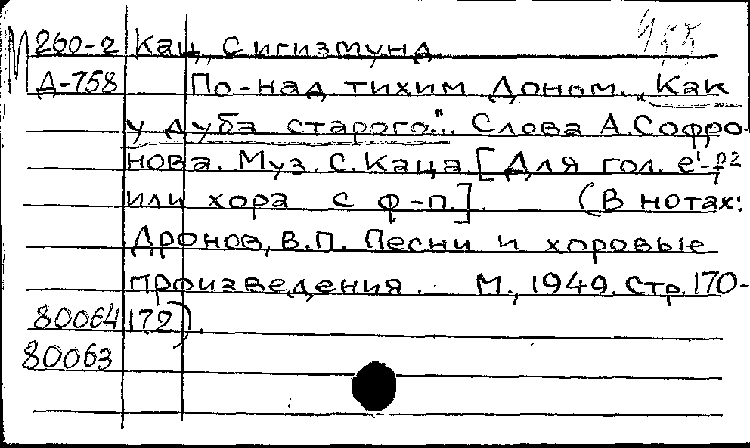 М 260-2 Кац, Сигизмунд
Д-758 По-над тихим Доном. „Как
у дуба старого“... Слова А. Софро-
нова. Муз. С. Каца. [Для гол. e¹-
или хора с ф-п.]. (В нотах:
Дронов, В.П. Песни и хоровые
произведения. М., 1949. Стр. 170-
80064 172).
80063